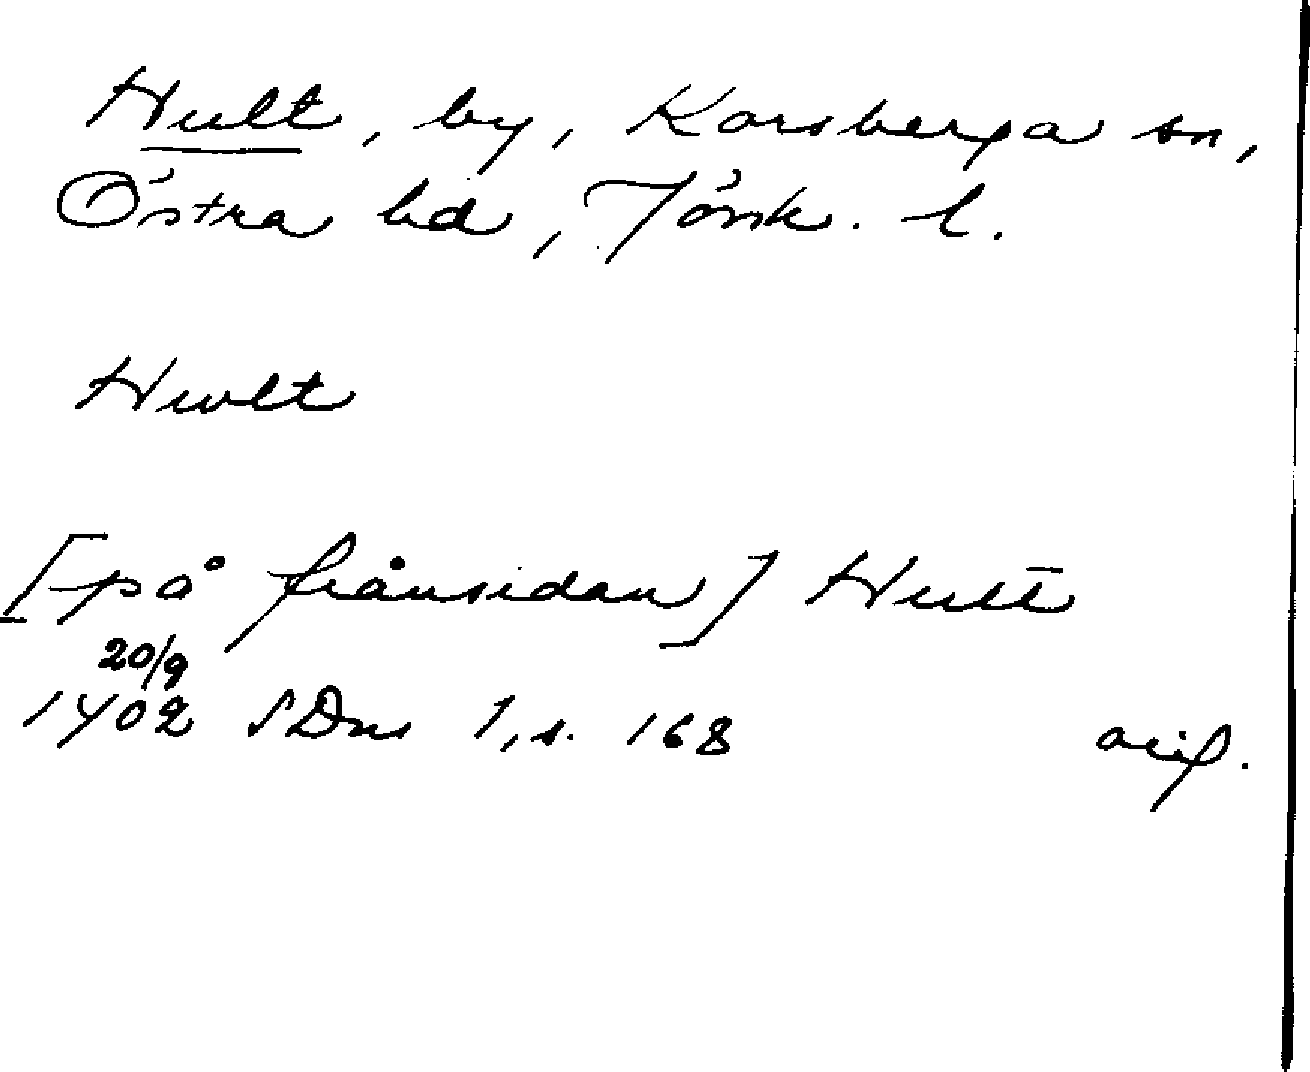 Hult, by, Korsberga sn,
Östra hd, Jönk. l.
Hwlt
[på frånsidan] Hult
20/9
1402 SDns 1, s. 168 orig.